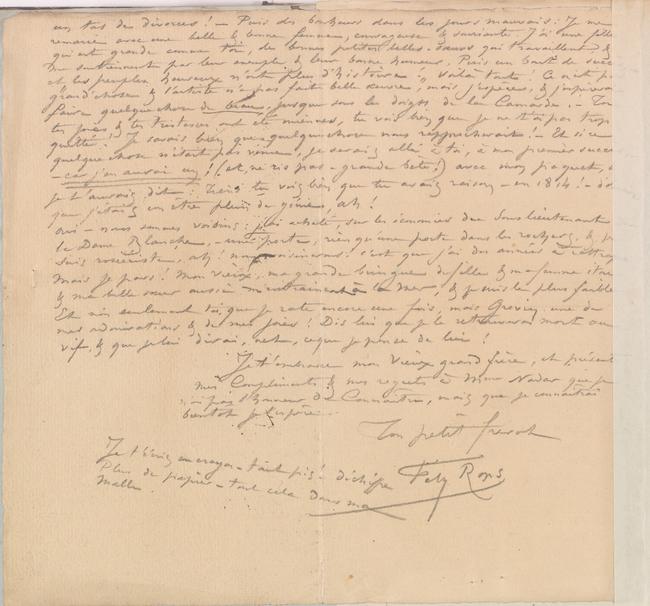 un tas de divorces ! – Puis des bonheurs dans les jours mauvais : Je me
remarie avec une belle & bonne femme, courageuse & savante J'ai une fille
qui est grande comme toi, de bonnes petites belles-sœurs qui travaillent &
me soutiennent par leur exemple & leur bonne humeur. Puis un bout de succès
et les peuples heureux n'ont plus d'histoire. Voilà tout ! Ce n'est pas
grand'chose & l'artiste n'a pas fait belle œuvre, mais j'espère, & j'espérerai
faire quelque chose de beau, jusque sous les doigts de la Camarde. – Tou
tes joies & tes tristesses ont été miennes, tu vois bien que je ne t'ai pas trop
quitté ! Je savais bien que quelque chose nous rapprocherait. – Et si ce
quelque chose n'était pas venu, je serais allé à toi, à mon premier succès
– car j'en aurais eu ! (et, ne ris pas – grande bête !) avec mon paquet, &
je t'aurais dit : Tiens tu vois bien que tu avais raison – en 1814. –
que j'étais un être plein de génie, ah !
oui – nous sommes voisins : j'ai acheté sur les économies du Sous lieutenant
de la Dame Blanche, – une porte, rien qu'une porte dans les rochers, & je
suis rosiériste, ah ! nous voisinerons ! c'est que j'ai des années à rattrap
Mais je pars ! Mon vieux, ma grande bringue de fille & ma femme
& ma belle sœur aussi m'entraînent à la mer, & je suis le plus faible
Et non seulement toi, que je rate encore une fois, mais Grévin, une de
mes admirations & de mes joies ! Dis lui que je le retrouverai mort ou
vif, & que je lui dirai, net, ce que je pense de lui !
Je t'embrasse mon Vieux grand frère, et présent
mes Compliments & mes regrets à Mme Nadar que je
n'ai pas l'honneur de Connaître, mais que je connaîtrai
bientôt je l'espère.
Ton petit frérot
Fély Rops
Je t'écris au crayon – tant pis ! – déchiffre
Plus de papier – tout cela dans ma
malle.